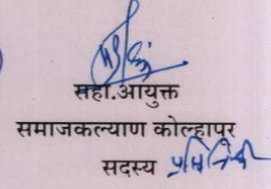 सहा.आयुक्त
समाजकल्याण कोल्हापूर
सदस्य प्रतिनिधी